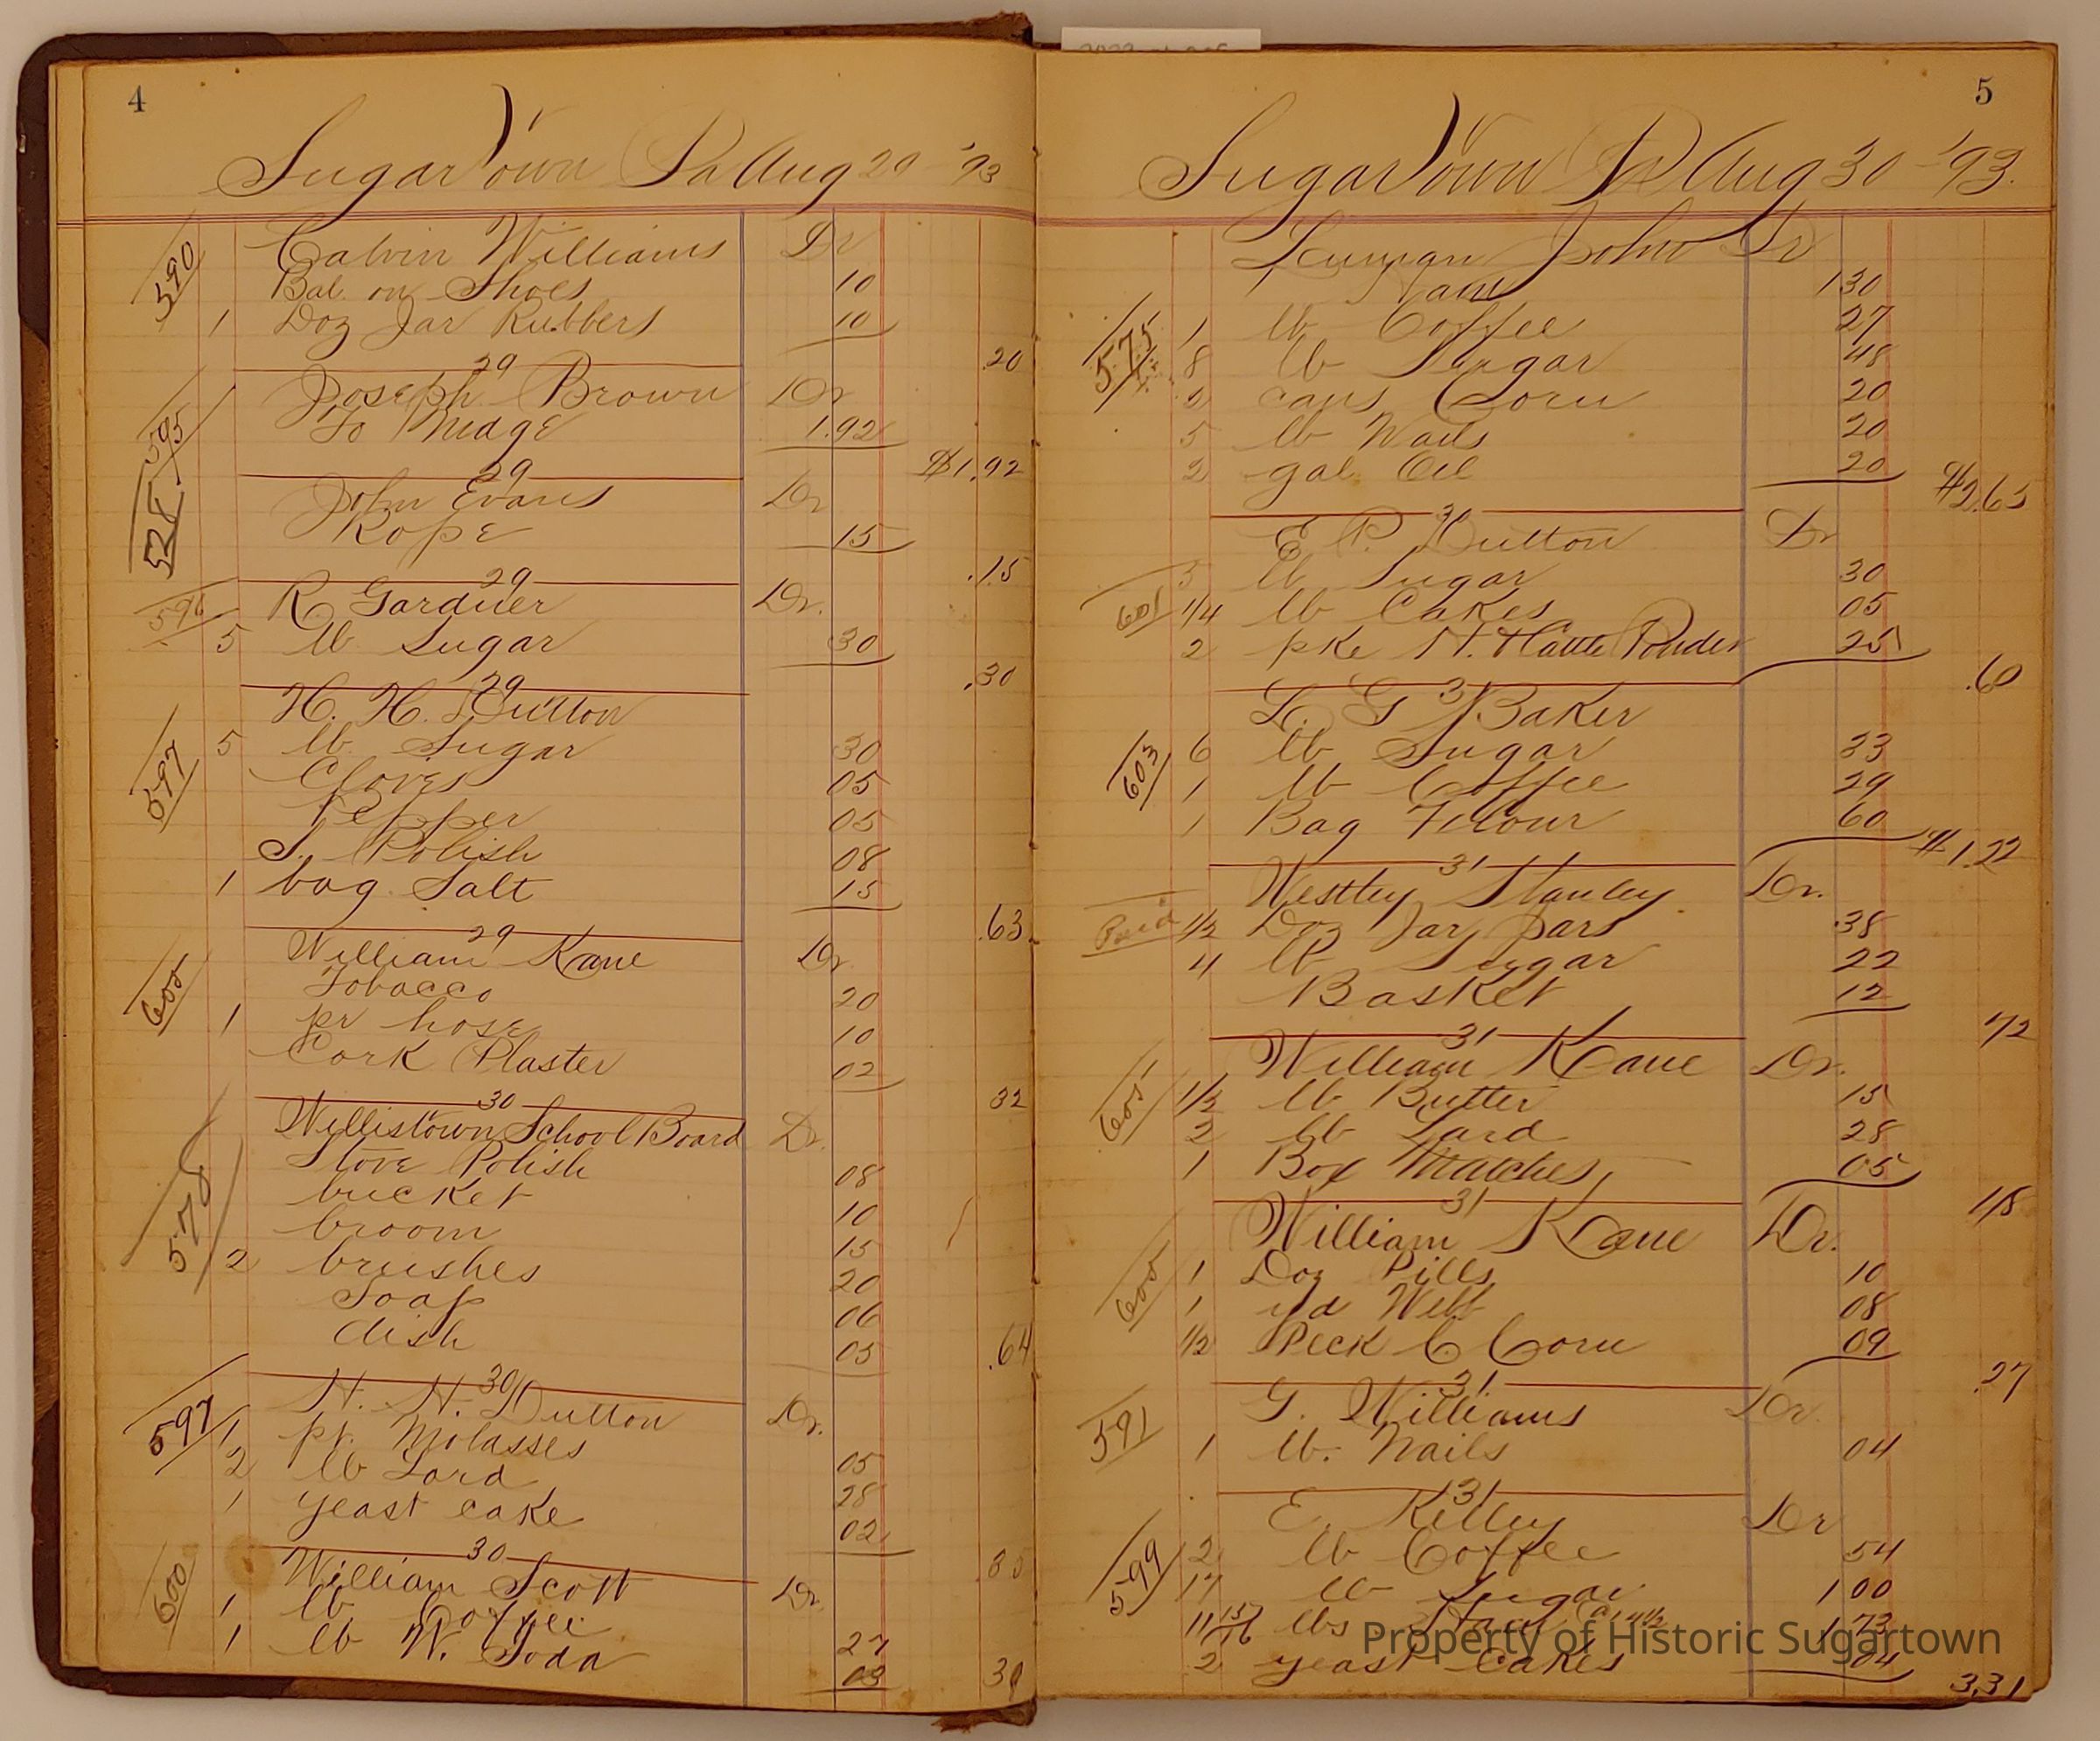 4
SugarTown Pa Aug 29 - '93
590
Calvin Williams Dr
Bal. on Shoes 10
1 Doz Jar Rubbers 10
.20
29
595
Joseph Brown Dr
To Mdge 1.92
$1.92
29
528
John Evans Dr
Rope 15
.15
29
596
R. Gardner Dr.
5 lb Sugar 30
.30
29
597
H. H. Dutton
5 lb Sugar 30
Cloves 05
Pepper 05
S. Polish 08
1 bag Salt 15
.63
29
600
William Kane Dr
Tobacco 20
1 pr hose 10
Cork Plaster 02
32
30
578
Willistown School Board Dr.
Stove Polish 08
bucket 10
broom 15
2 brushes 20
Soap 06
dish 05
.64
30
597
H. H. Dutton Dr.
1 pt. Molasses 05
2 lb Lard 28
1 yeast cake 02
30
600
William Scott Dr.
1 lb Coffee 27
1 lb W. Soda 03
30
5
SugarTown Pa Aug 30 - '93.
575
Luman John Dr
Ham 1 30
1 lb Coffee 27
8 lb Sugar 48
2 cans Corn 20
5 lb Nails 20
2 gal. Oil 20
$2.65
30
601
E. P. Dutton Dr
5 lb Sugar 30
1/4 lb Cakes 05
2 pke H. & Cattle Powder 25
.60
31
603
L. G. Baker
6 lb Sugar 33
1 lb Coffee 29
1 Bag Flour 60
$1.22
31
Paid
Westley Stanley Dr.
1/2 Doz Jar Jars 38
4 lb Sugar 22
Basket 12
72
31
600
William Kane Dr.
1/2 lb Butter 15
2 lb Lard 28
1 Box Matches 05
48
31
600
William Kane Dr.
1 Doz Pills 10
1 yd Web 08
1/2 Peck C Corn 09
.27
31
591
G. Williams Dr.
1 lb. Nails 04
31
599
E. Kelley Dr
2 lb Coffee 54
17 lb Sugar 1 00
11 15/16 lbs Ham @ 14 1/2 1 73
2 yeast Cakes 04
3.31
Property of Historic Sugartown